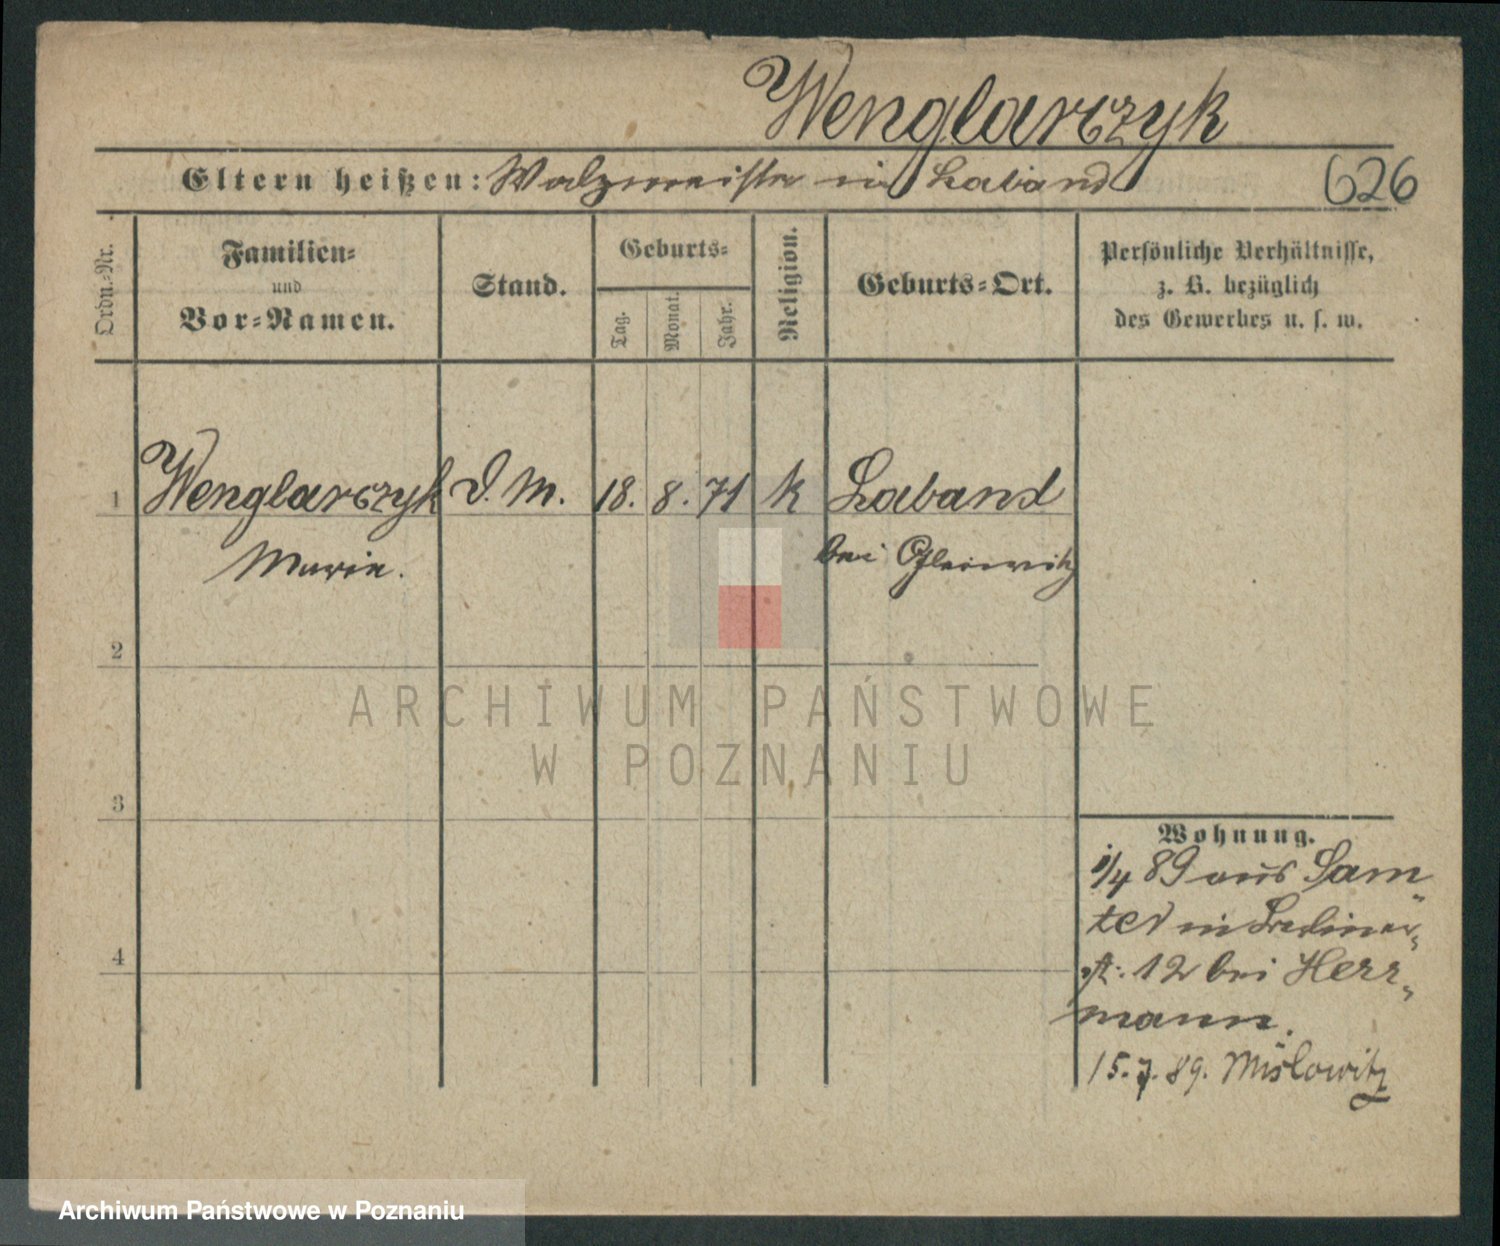 Wenglarczyk
Eltern heißen: Walzmeister in Laband
626
Ordn.-Nr.
Familien-
und
Vor-Namen.
Stand.
Geburts-
Tag.
Monat.
Jahr.
Religion.
Geburts-Ort.
Persönliche Verhältnisse,
z. B. bezüglich
des Gewerbes u. s. w.
1 Wenglarczyk D. M. 18. 8. 71 k Laband
Marie. bei Gleiwitz
2
ARCHIWUM PAŃSTWOWE
W POZNANIU
3
Wohnung.
1/4 89 aus Sam-
ter in Berliner-
st. 12 bei Herr-
4
mann.
15. 7. 89. Mislowitz
Archiwum Państwowe w Poznaniu